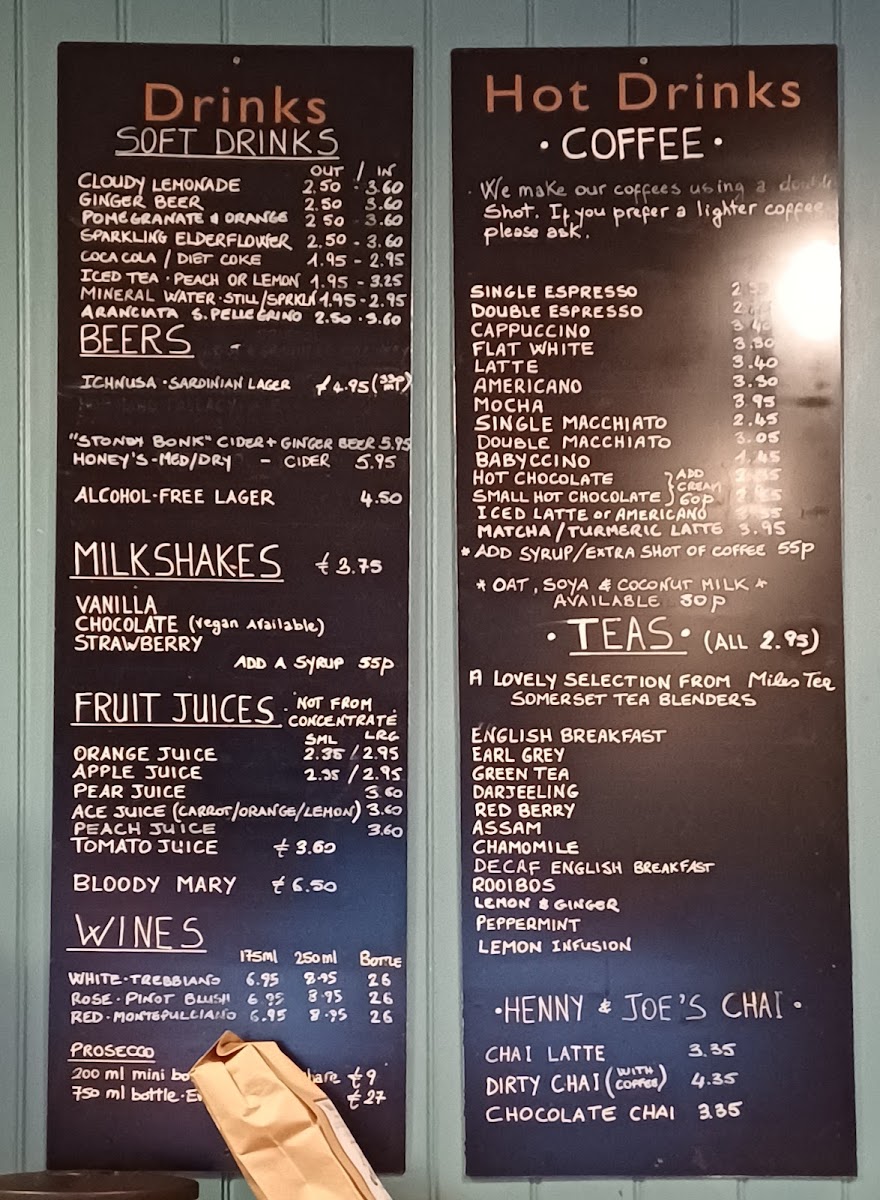 Drinks
SOFT DRINKS
OUT / IN
CLOUDY LEMONADE 2.50 - 3.60
GINGER BEER 2.50 3.60
POMEGRANATE & ORANGE 2.50 - 3.60
SPARKLING ELDERFLOWER 2.50 - 3.60
COCA COLA / DIET COKE 1.95 - 2.95
ICED TEA · PEACH OR LEMON 1.95 - 3.25
MINERAL WATER · STILL/SPRKLN 1.95 - 2.95
ARANCIATA S. PELLEGRINO 2.50 - 3.60
BEERS
ICHNUSA · SARDINIAN LAGER £4.95 (33
"STONDY BONK" CIDER + GINGER BEER 5.95
HONEY'S - MED/DRY - CIDER 5.95
ALCOHOL-FREE LAGER 4.50
MILKSHAKES £3.75
VANILLA
CHOCOLATE (vegan Available)
STRAWBERRY
ADD A SYRUP 55p
FRUIT JUICES · NOT FROM CONCENTRATE
SML LRG
ORANGE JUICE 2.35 / 2.95
APPLE JUICE 2.35 / 2.95
PEAR JUICE 3.60
ACE JUICE (CARROT/ORANGE/LEMON) 3.60
PEACH JUICE 3.60
TOMATO JUICE £3.60
BLOODY MARY £6.50
WINES
175ml 250ml BOTTLE
WHITE - TREBBIANO 6.95 8.95 26
ROSE · PINOT BLUSH 6.95 8.95 26
RED - MONTEPULCIANO 6.95 8.95 26
PROSECCO
200 ml mini £9
750 ml bottle £27
Hot Drinks
· COFFEE ·
· We make our coffees using a double
shot. If you prefer a lighter coffee
please ask.
SINGLE ESPRESSO
DOUBLE ESPRESSO
CAPPUCCINO 3.40
FLAT WHITE 3.30
LATTE 3.40
AMERICANO 3.30
MOCHA 3.95
SINGLE MACCHIATO 2.45
DOUBLE MACCHIATO 3.05
BABYCCINO 1.45
HOT CHOCOLATE } ADD CREAM 60p
SMALL HOT CHOCOLATE
ICED LATTE or AMERICANO
MATCHA/TURMERIC LATTE 3.95
* ADD SYRUP/EXTRA SHOT OF COFFEE 55p
* OAT, SOYA & COCONUT MILK *
AVAILABLE 30p
· TEAS · (ALL 2.95)
A LOVELY SELECTION FROM Miles Tea
SOMERSET TEA BLENDERS
ENGLISH BREAKFAST
EARL GREY
GREEN TEA
DARJEELING
RED BERRY
ASSAM
CHAMOMILE
DECAF ENGLISH BREAKFAST
ROOIBOS
LEMON & GINGER
PEPPERMINT
LEMON INFUSION
· HENNY & JOE'S CHAI ·
CHAI LATTE 3.35
DIRTY CHAI (WITH COFFEE) 4.35
CHOCOLATE CHAI 3.35